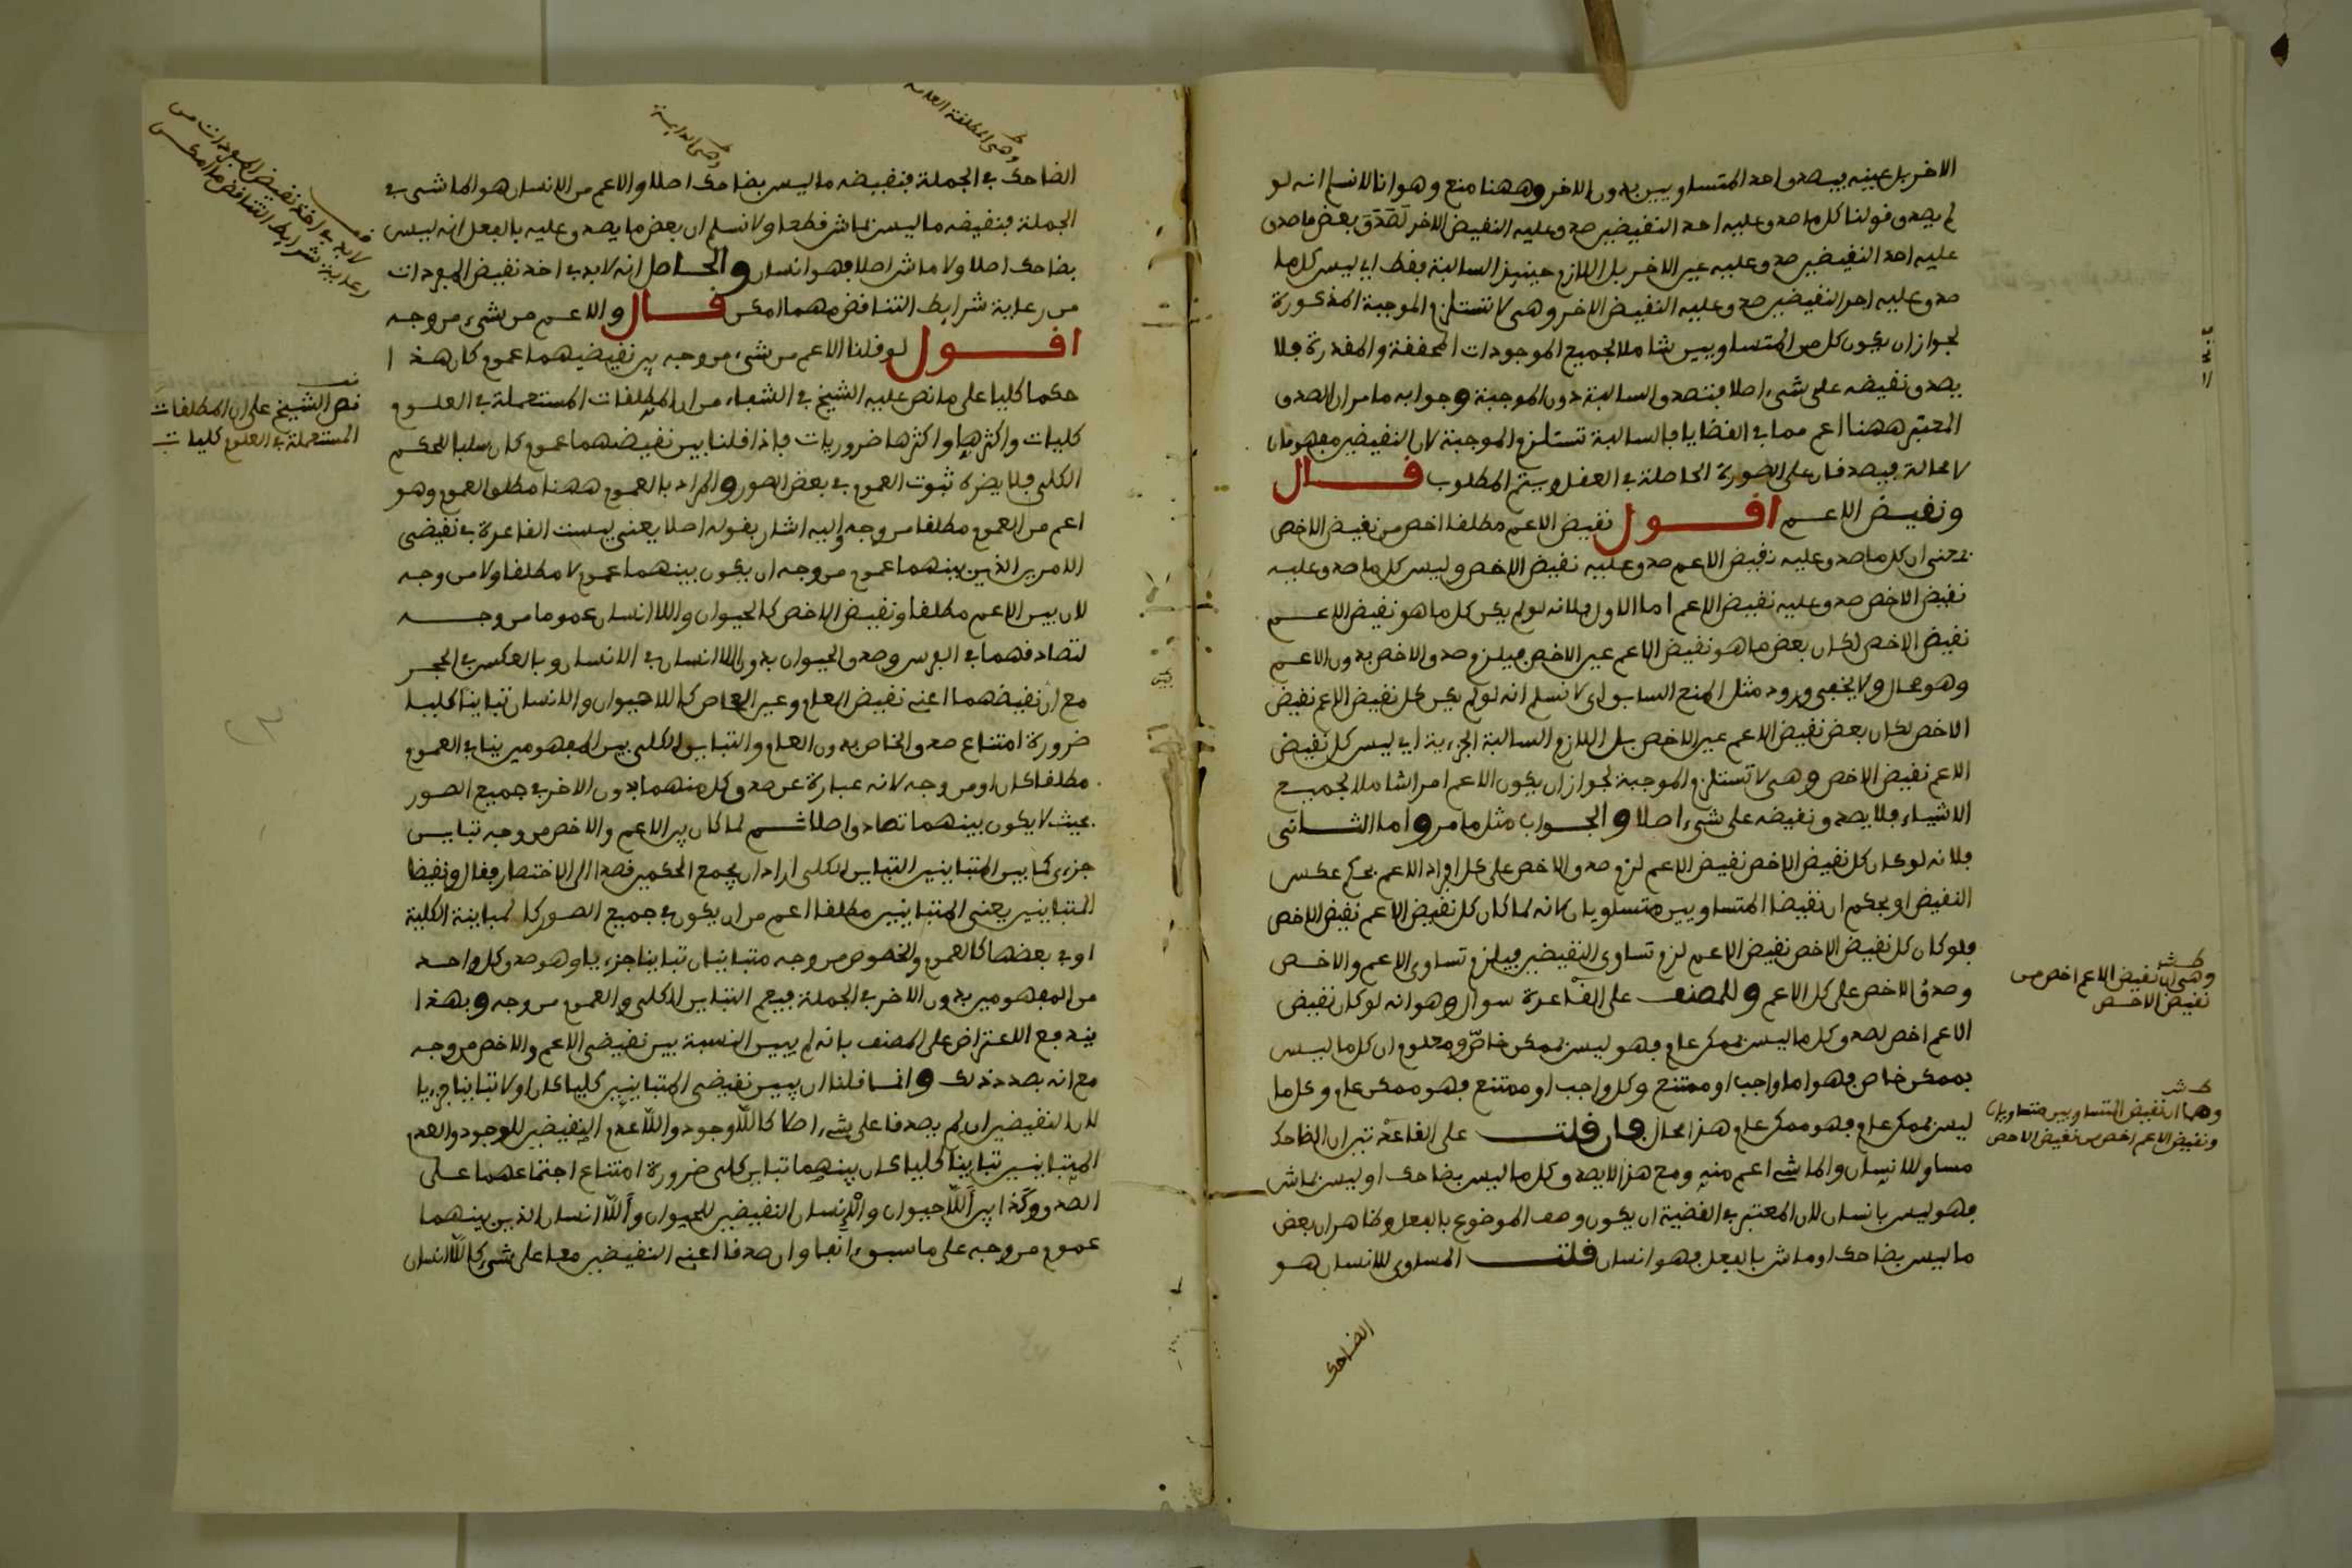 الاخر بل عينه فيصدق احد المتساويين بدون الاخر وههنا منع وهو انا لا نسلم انه لو
لم يصدق قولنا كل ما صدق عليه احد النقيضين صدق عليه النقيض الاخر لصدق بعض ما صدق
عليه احد النقيضين صدق عليه عين الاخر بل اللازم حينيذ السالبة فقط اي ليس كل ما
صدق عليه احد النقيضين صدق عليه النقيض الاخر وهى لا تستلزم الموجبة المذكورة
لجواز ان يكون كل من المتساويين شاملا لجميع الموجودات المحققة والمقدرة فلا
يصدق نقيضه على شىء اصلا فتصدق السالبة دون الموجبة وجوابه ما مر ان الصدق
المعتبر ههنا اعم مما في القضايا فالسالبة تستلزم الموجبة لان النقيضين مفهومان
لا محالة فيصدقان على الصورة الحاصلة في العقل ويتم المطلوب قال
ونقيض الاعم اقول نقيض الاعم مطلقا اخص من نقيض الاخص
يعنى ان كل ما صدق عليه نقيض الاعم صدق عليه نقيض الاخص وليس كل ما صدق عليه
نقيض الاخص صدق عليه نقيض الاعم اما الاول فلانه لو لم يكن كل ما هو نقيض الاعم
نقيض الاخص لكان بعض ما هو نقيض الاعم عين الاخص فيلزم صدق الاخص بدون الاعم
وهو محال ولا يخفى ورود مثل المنع السابق اى لا نسلم انه لو لم يكن كل نقيض الاعم نقيض
الاخص لكان بعض نقيض الاعم عين الاخص بل اللازم السالبة الجزءية اي ليس كل نقيض
الاعم نقيض الاخص وهى لا تستلزم الموجبة لجواز ان يكون الاعم امرا شاملا لجميع
الاشياء فلا يصدق نقيضه على شىء اصلا والجواب مثل ما مر واما الثانى
فلانه لو كان كل نقيض الاخص نقيض الاعم لزم صدق الاخص على كل افراد الاعم بحكم عكس
النقيض او بحكم ان نقيضا المتساويين متساويان لانه لما كان كل نقيض الاعم نقيض الاخص
فلو كان كل نقيض الاخص نقيض الاعم لزم تساوى النقيضين فيلزم تساوى الاعم والاخص
وصدق الاخص على كل الاعم وللمصنف على القاعدة سوال وهو انه لو كان نقيض
الاعم اخص لصدق كل ما ليس بممكن عام فهو ليس بممكن خاص ومعلوم ان كل ما ليس
بممكن خاص فهو اما واجب او ممتنع وكل واجب او ممتنع فهو ممكن عام وكل ما
ليس بممكن عام فهو ممكن عام هذا محال فان قلت على القاعدتين ان الضاحك
مساو للانسان والماشى اعم منه ومع هذا لا يصدق كل ما ليس بضاحك او ليس بماش
فهو ليس بانسان لان المعتبر في القضية ان يكون وصف الموضوع بالفعل وظاهر ان بعض
ما ليس بضاحك او ماش بالفعل فهو انسان قلت المساوى للانسان هو
الضاحك
وهى ان نقيض الاعم اخص من
نقيض الاخص
وهما ان نقيض المتساويين متساويان
ونقيض الاعم اخص من نقيض الاخص
وهى المطلقة العامة
وهى الدايمة
الضاحك في الجملة فنقيضه ما ليس بضاحك اصلا والاعم من الانسان هو الماشى في
الجملة فنقيضه ما ليس بماش قطعا ولا نسلم ان بعض ما يصدق عليه بالفعل انه ليس
بضاحك اصلا ولا ماش اصلا فهو انسان والحاصل انه لا بد في اخذ نقيض المفردات
من رعاية شرايط التناقض مهما امكن قال والاعم من شىء من وجه
اقول لو قلنا الاعم من شىء من وجه بين نقيضيهما عموم كان هذا
حكما كليا على ما نص عليه الشيخ في الشفاء من ان المطلقات المستعملة في العلوم
كليات واكثرها واكثرها ضروريات فاذا قلنا ليس بين نقيضهما عموم كان سلبا للحكم
الكلى فلا يضره ثبوت العموم في بعض الصور والمراد بالعموم ههنا مطلق العموم وهو
اعم من العموم مطلقا من وجه واليه اشار بقوله اصلا يعنى ليست القاعدة في نقيضى
الامرين الذين بينهما عموم من وجه ان يكون بينهما عموم لا مطلقا ولا من وجه
لان بين الاعم مطلقا ونقيض الاخص كالحيوان واللا انسان عموما من وجه
لتصادقهما في الفرس وصدق الحيوان بدون اللا انسان في الانسان وبالعكس في الحجر
مع ان نقيضهما اعنى نقيض العام وعين الخاص كاللا حيوان والانسان تباينا كليا
ضرورة امتناع صدق الخاص بدون العام والتباين الكلى بين المفهومين ينافي العموم
مطلقا كان او من وجه لانه عبارة عن صدق كل منهما بدون الاخر في جميع الصور
بحيث لا يكون بينهما تصادق اصلا ثم لما كان بين الاعم والاخص من وجه تباين
جزءى كما بين المتباينين التباين الكلى اراد ان يجمع الحكمين قصدا الى الاختصار فقال ونقيضا
المتباينين يعنى المتباينين مطلقا اعم من ان يكون في جميع الصور كالمباينة الكلية
او في بعضها كالعموم والخصوص من وجه متباينان تباينا جزءيا وهو صدق كل واحد
من المفهومين بدون الاخر في الجملة فيعم التباين الكلى والعموم من وجه وبهذا
يندفع الاعتراض على المصنف بانه لم يبين النسبة بين نقيضى الاعم والاخص من وجه
مع انه بصدد ذلك وانما قلنا ان بين نقيضى المتباينين كليا كان اولا تباينا جزءيا
لان النقيضين ان لم يصدقا على شىء اصلا كاللا وجود واللا عدم النقيضين للوجود والعدم
المتباينين تباينا كليا كان بينهما تباين كلى ضرورة امتناع اجتماعهما على
الصدق وكذا بين اللا حيوان والانسان النقيضين للحيوان واللا انسان الذين بينهما
عموم من وجه على ما سبق ءانفا وان صدقا اعنى النقيضين معا على شىء كاللا انسان
لا بد في اخذ نقيض المفردات من
رعاية شرايط التناقض ما امكن
نص الشيخ على ان المطلقات
المستعملة في العلوم كليات